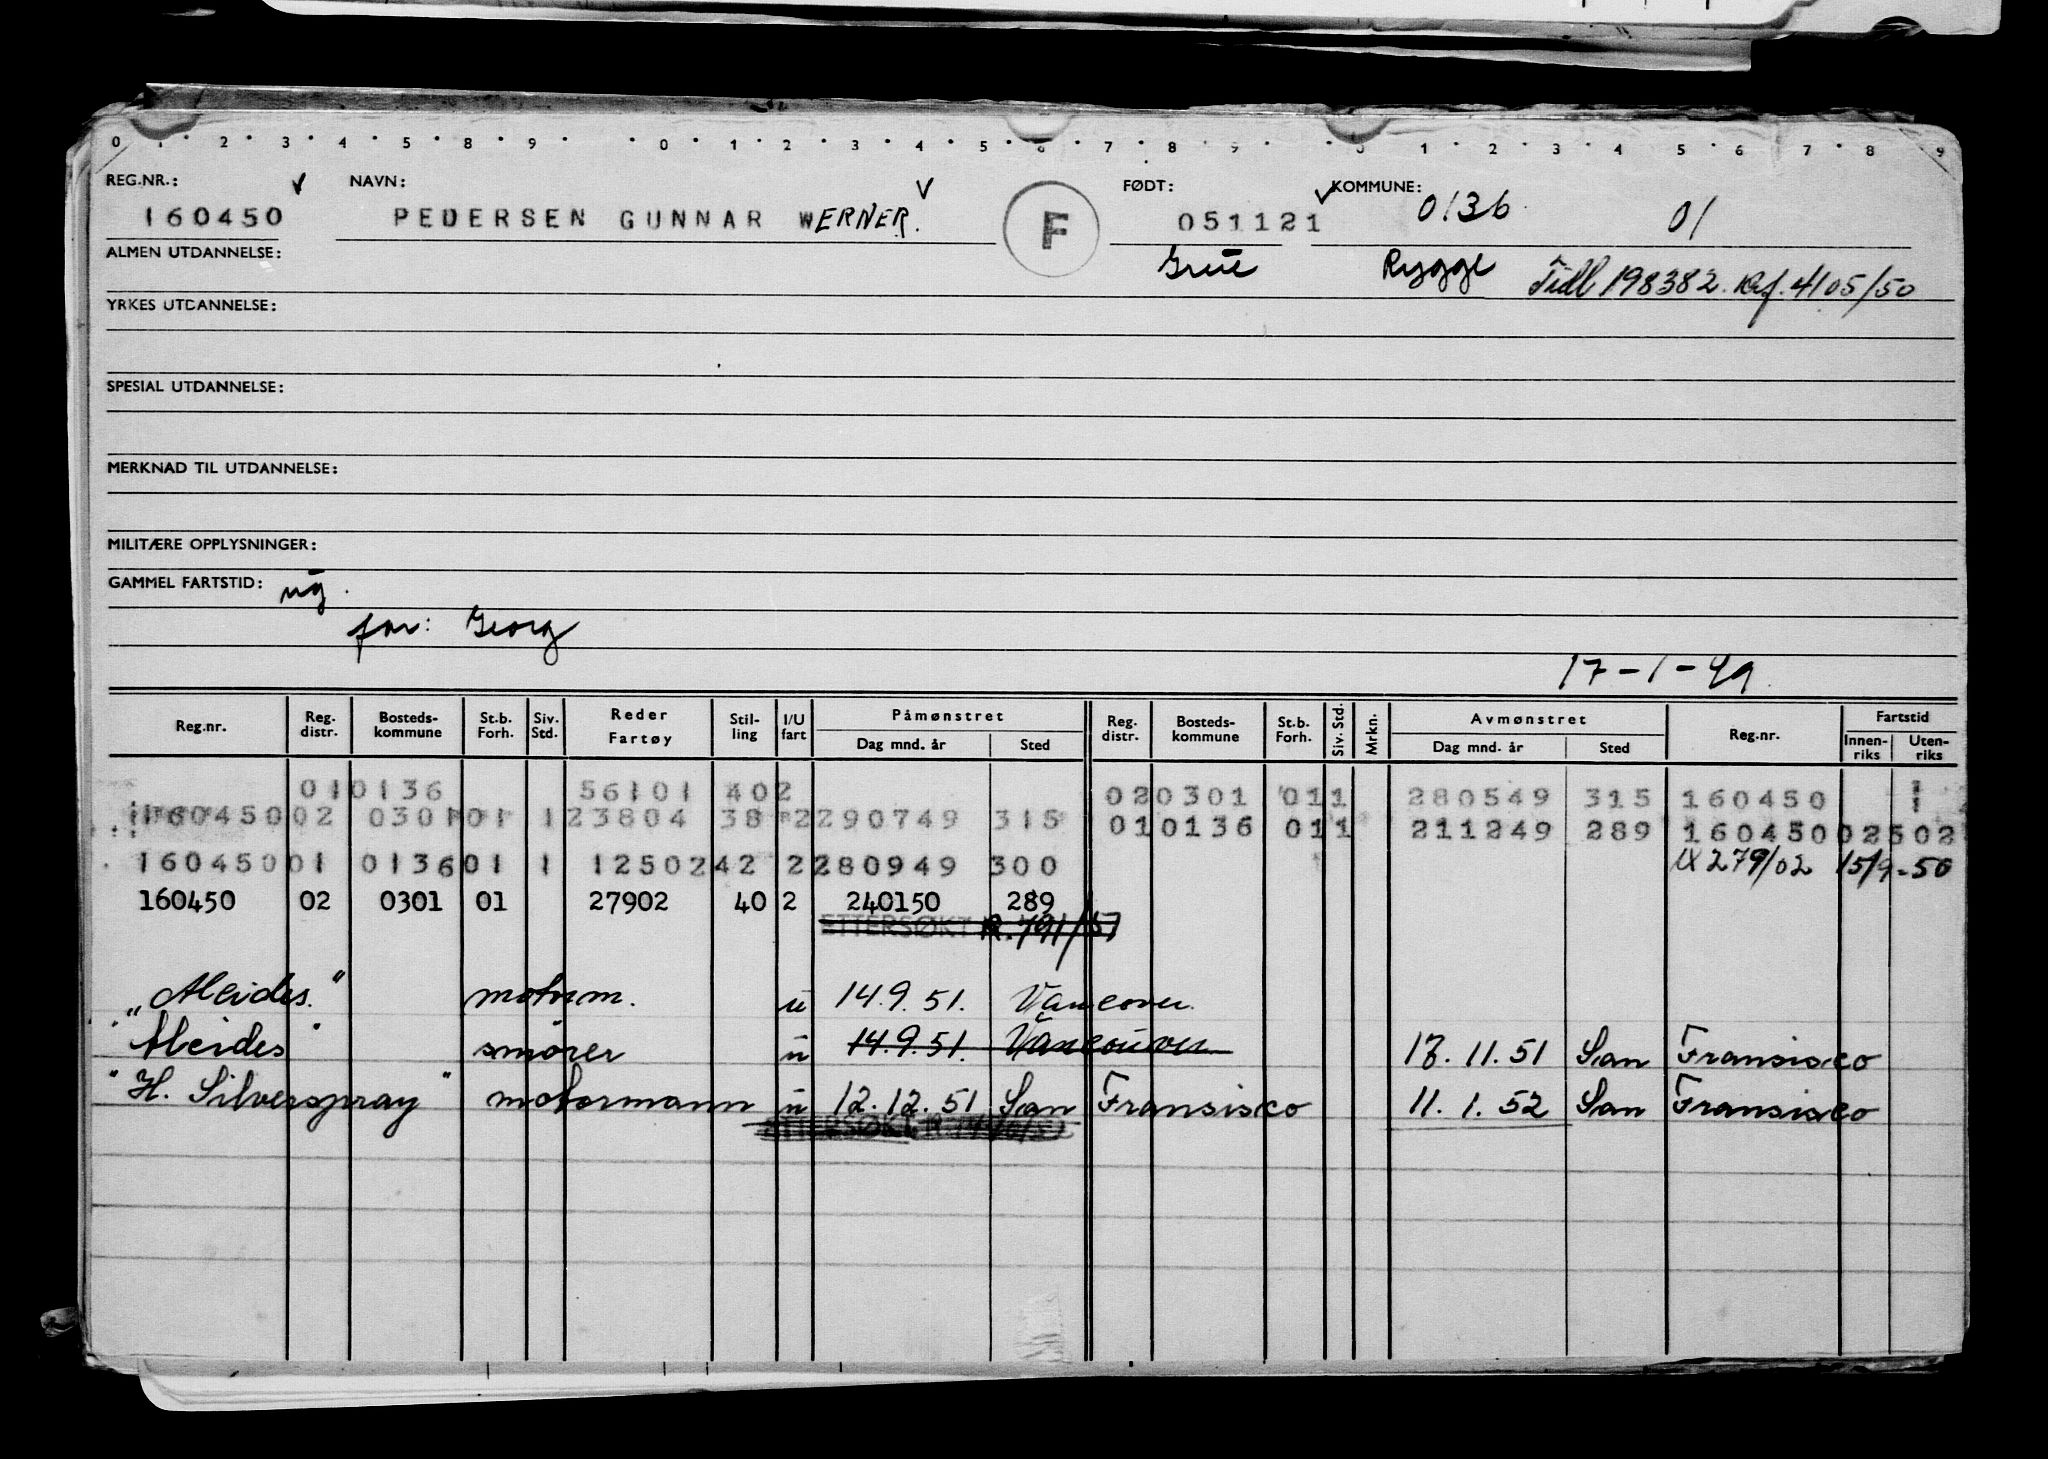 0 1 2 3 4 5 8 9 0 1 2 3 4 5 6 7 8 9 0 1 2 3 4 5 6 7 8 9
REG.NR.: NAVN: FØDT: KOMMUNE:
160450 PEDERSEN GUNNAR WERNER. F 051121 0136 01
ALMEN UTDANNELSE: Grue Rygge Tidl 198382. Ref. 4105/50
YRKES UTDANNELSE:
SPESIAL UTDANNELSE:
MERKNAD TIL UTDANNELSE:
MILITÆRE OPPLYSNINGER:
GAMMEL FARTSTID: ug.
far: Georg
17-1-49.
Reg.nr. Reg. distr. Bosteds-kommune St.b. Forh. Siv. Std. Reder Fartøy Stil-ling I/U fart Påmønstret Dag mnd. år Sted Reg. distr. Bosteds-kommune St.b. Forh. Siv. Std. Mrkn. Avmønstret Dag mnd. år Sted Reg.nr. Fartstid Innen-riks Uten-riks
010136 56101 402 020301 011 280549 315 160450 1
16045002 0301 01 123804 38 2290749 315 010136 011 211249 289 16045002502
16045001 013601 1 1250242 2280949 300 IX 279/02 15/9-50
160450 02 0301 01 27902 40 2 240150 289
ETTERSØKT R.791/51
"Alcides." motorm. u 14.9.51. Vancover.
"Alcides" smører u 14.9.51. Vancouver 13.11.51 San Fransisco
"H. Silverspray" motormann u 12.12.51 San Fransisco 11.1.52 San Fransisco
ETTERSØKT